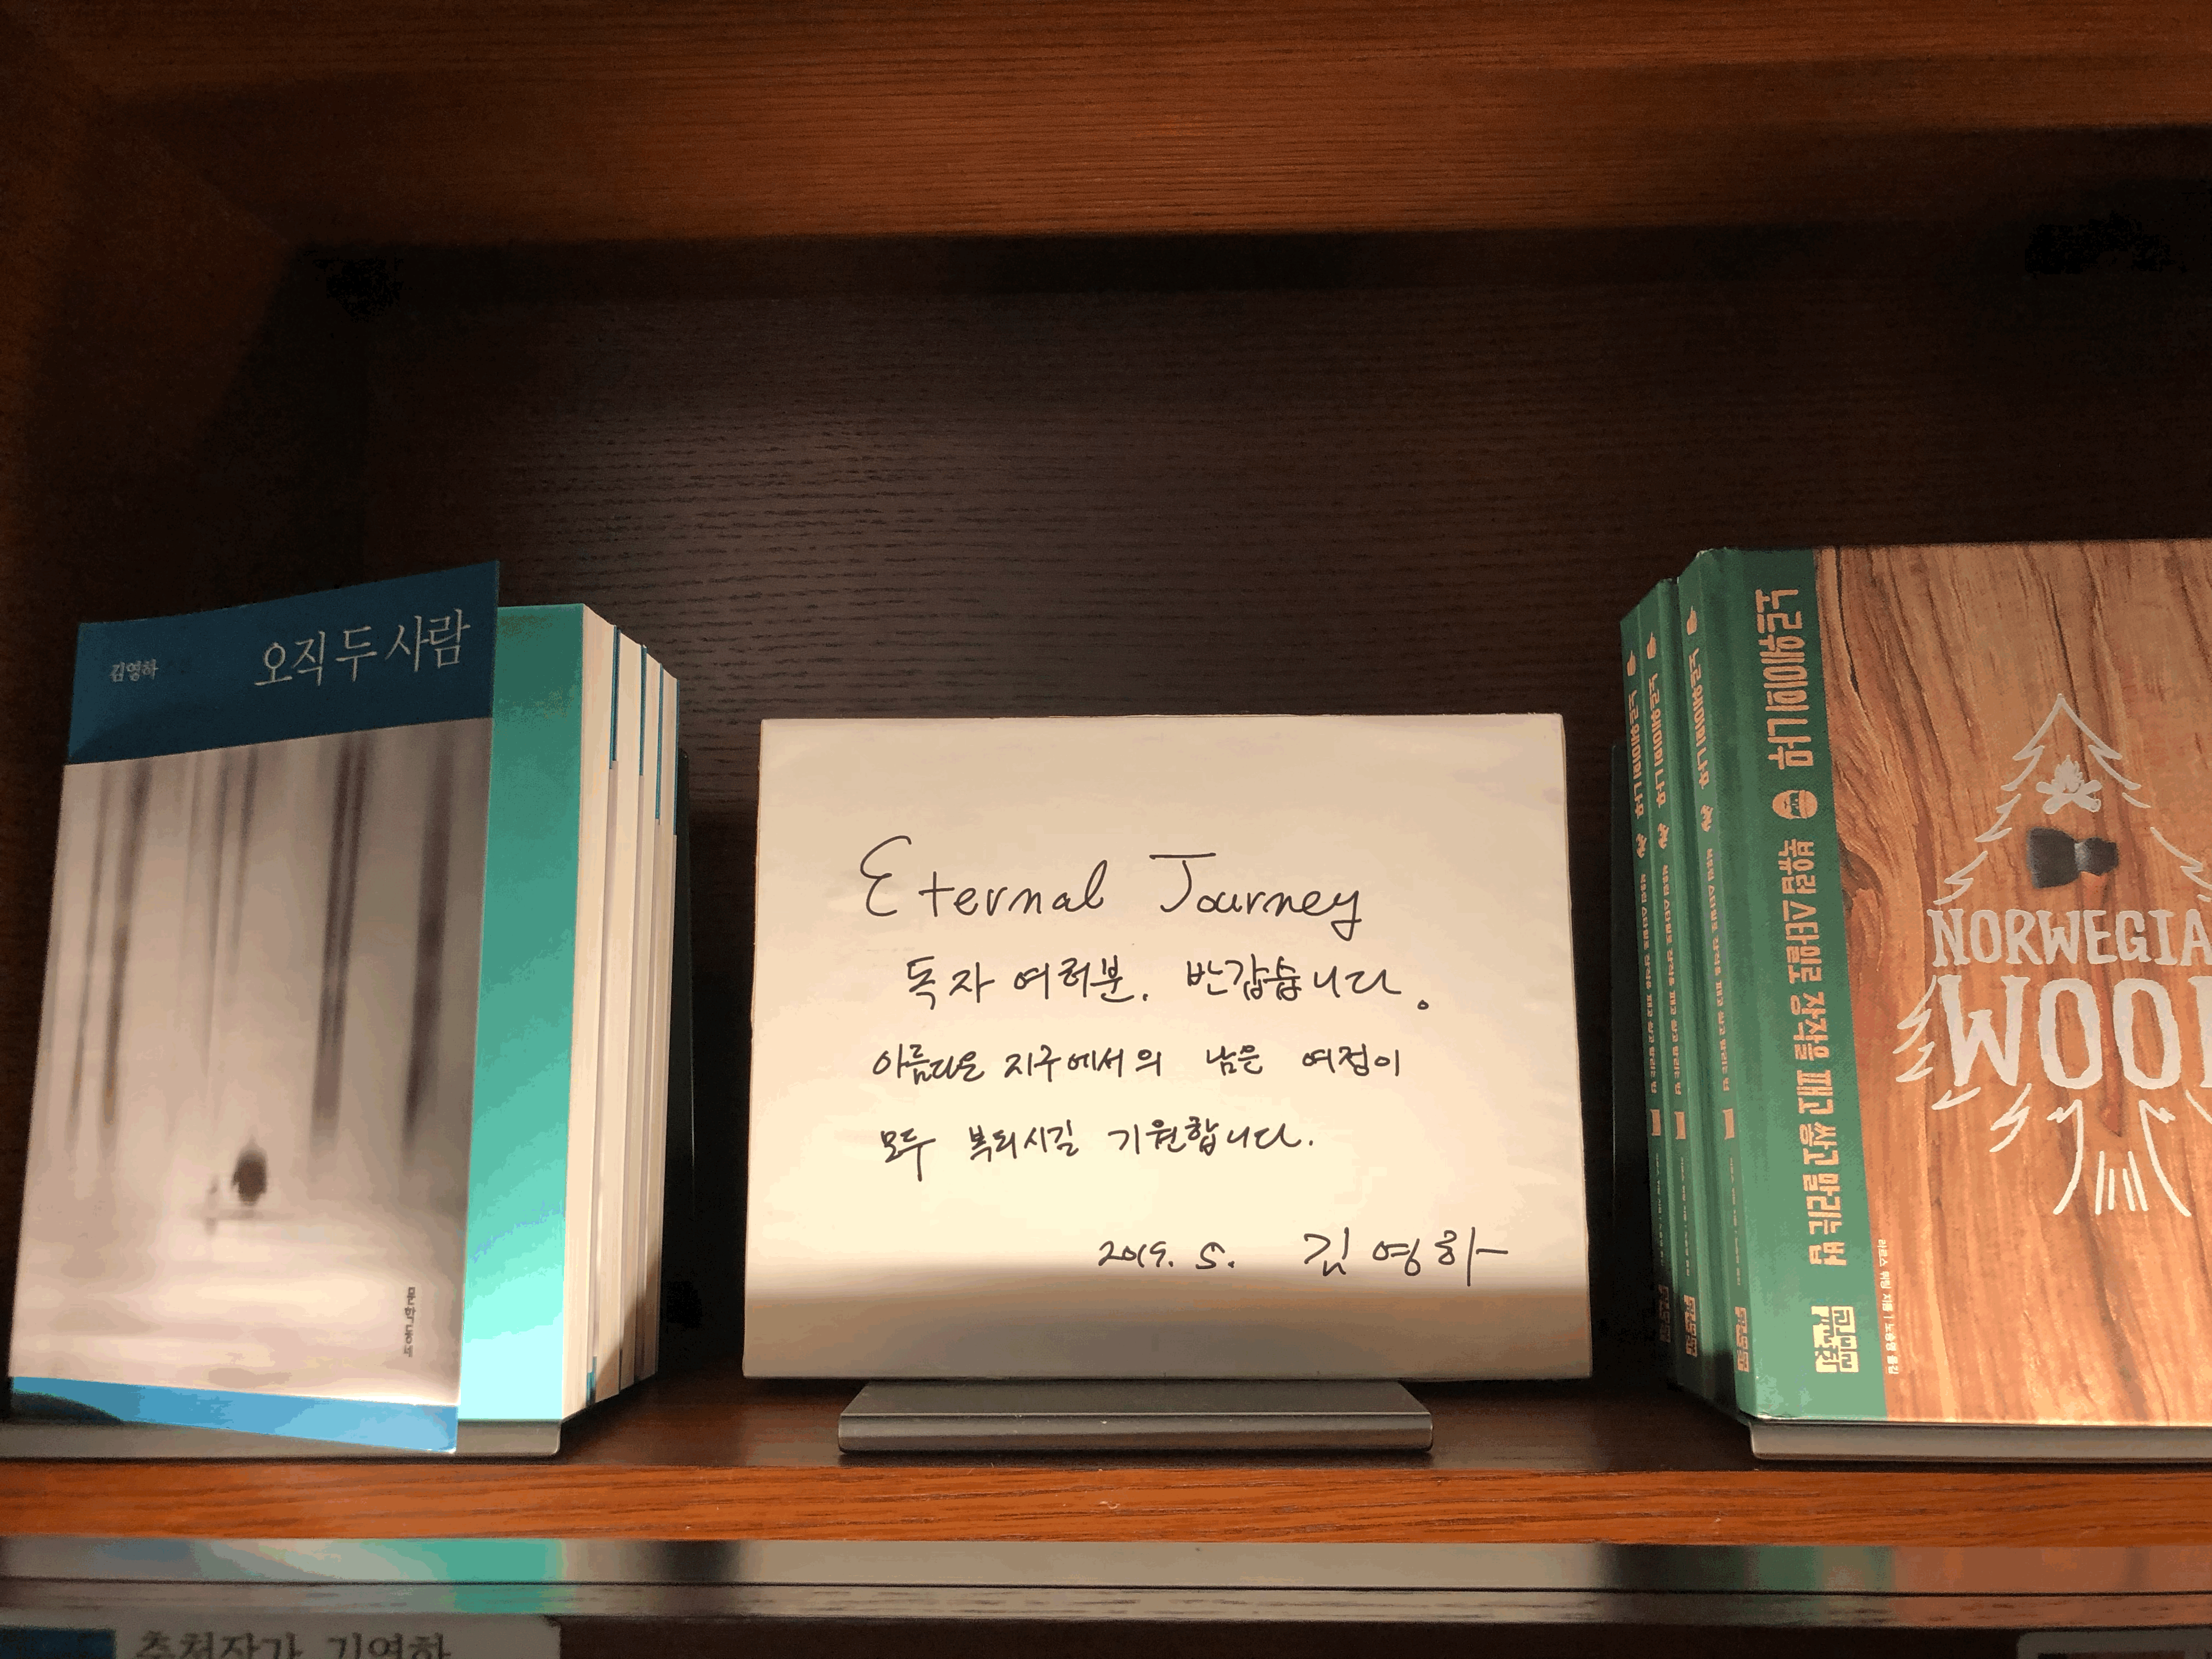 김영하 오직 두 사람
문학동네
Eternal Journey
독자 여러분. 반갑습니다.
아름다운 지구에서의 남은 여정이
모두 복되시길 기원합니다.
2019. 5. 김영하
노르웨이의 나무
노르웨이의 나무
노르웨이의 나무
노르웨이의 나무 북유럽 스타일로 장작을 패고 쌓고 말리는 법
라르스 뮈팅 지음 | 노승영 옮김
NORWEGIA
WOO
추천작가 김영하